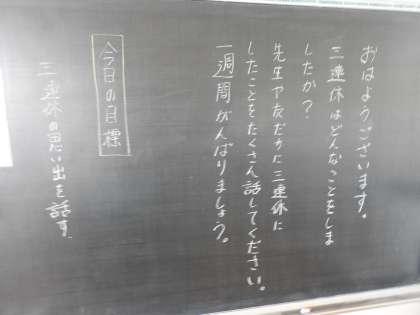 おはようございます。
三連休はどんなことをしま
したか?
先生や友だちに三連休に
したことをたくさん話してください。
一週間がんばりましょう。
今日の目標
三連休の思い出を話す